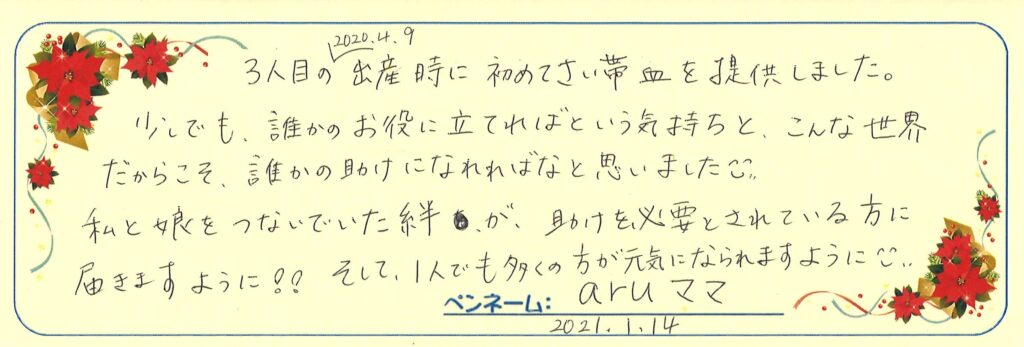 2020.4.9
3人目の出産時に初めてさい帯血を提供しました。
少しでも、誰かのお役に立てればという気持ちと、こんな世界
だからこそ、誰かの助けになれればなと思いました
私と娘をつないでいた絆が、助けを必要とされている方に
届きますように!! そして、1人でも多くの方が元気になられますように
ペンネーム: aruママ
2021.1.14